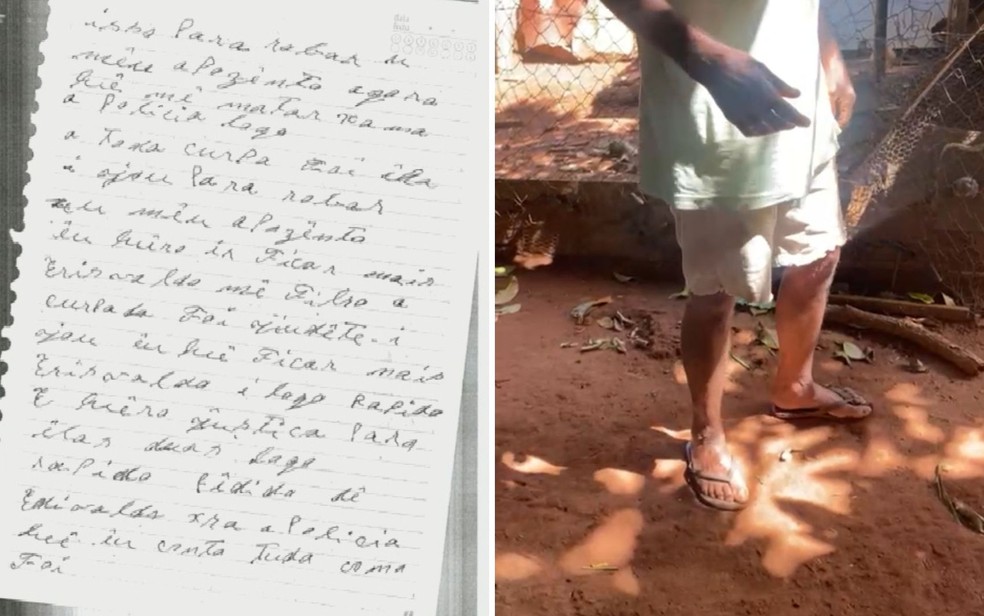 isto Para robar u
mêu apozênto agora
quê mê matar xama
a Policia logo
a Toda curpa Foi êla
i ojau Para robar
u mêu apozênto
êu quêro ir Ficar mais
Erisvaldo mê Filho a
curpada Foi
ojau êu quê Ficar mais
Erisvaldo i logo Rapido
E quêro justica Para
êlas duas logo
rapido Pidido dê
Erisvaldo xra a Policia
quê êu conto Tudo como
Foi